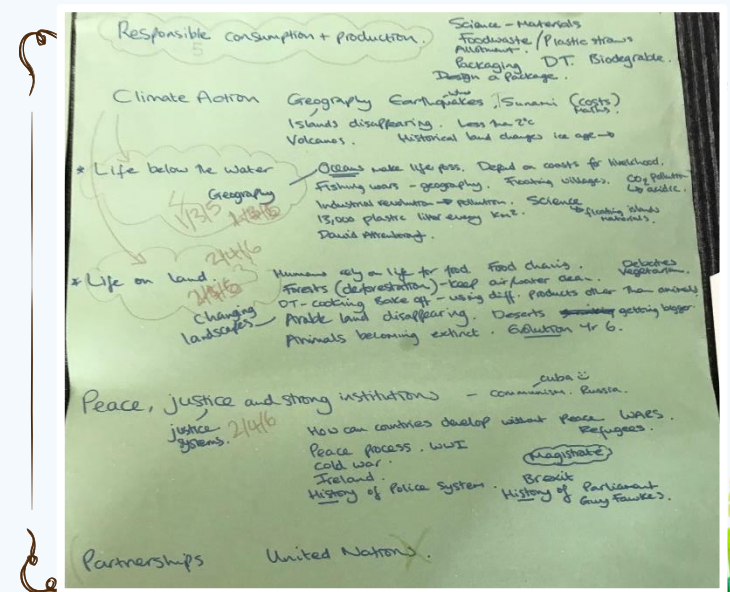 Responsible consumption + production.
5
Science - Materials
Foodwaste / Plastic straws
Allotment.
Packaging DT. Biodegrable.
Design a Package.
Climate Action Geography Earthquakes, Tsunami (costs)
Maths.
Islands disappearing. Less than 2°c
Volcanos. Historical land changes ice age →
* Life below the water
Oceans make life poss. Depend on coasts for livelihood.
Geography
Fishing wars - geography. Floating villages. CO2 pollution
↳ acidic.
1/3/5
Industrial revolution → pollution. Science
floating islands
materials.
13,000 plastic litter every km².
David Attenborough.
2/4/6
* Life on land.
Humans rely on life for food. Food chains. Debates
Vegetarian.
Forests (deforestation) - keep air/water clean.
DT - cooking Bake off - using diff. products other than animals
Changing
landscapes
Arable land disappearing. Deserts getting bigger
Animals becoming extinct. Evolution Yr 6.
Peace, justice and strong institutions - communism. Russia.
Cuba
justice
systems. 2/4/6
How can countries develop without Peace WARS.
Refugees.
Peace process. WWI
Cold war.
Ireland.
History of Police System.
Magistrate
Brexit
History of Parliament
Guy Fawkes.
Partnerships United Nations.